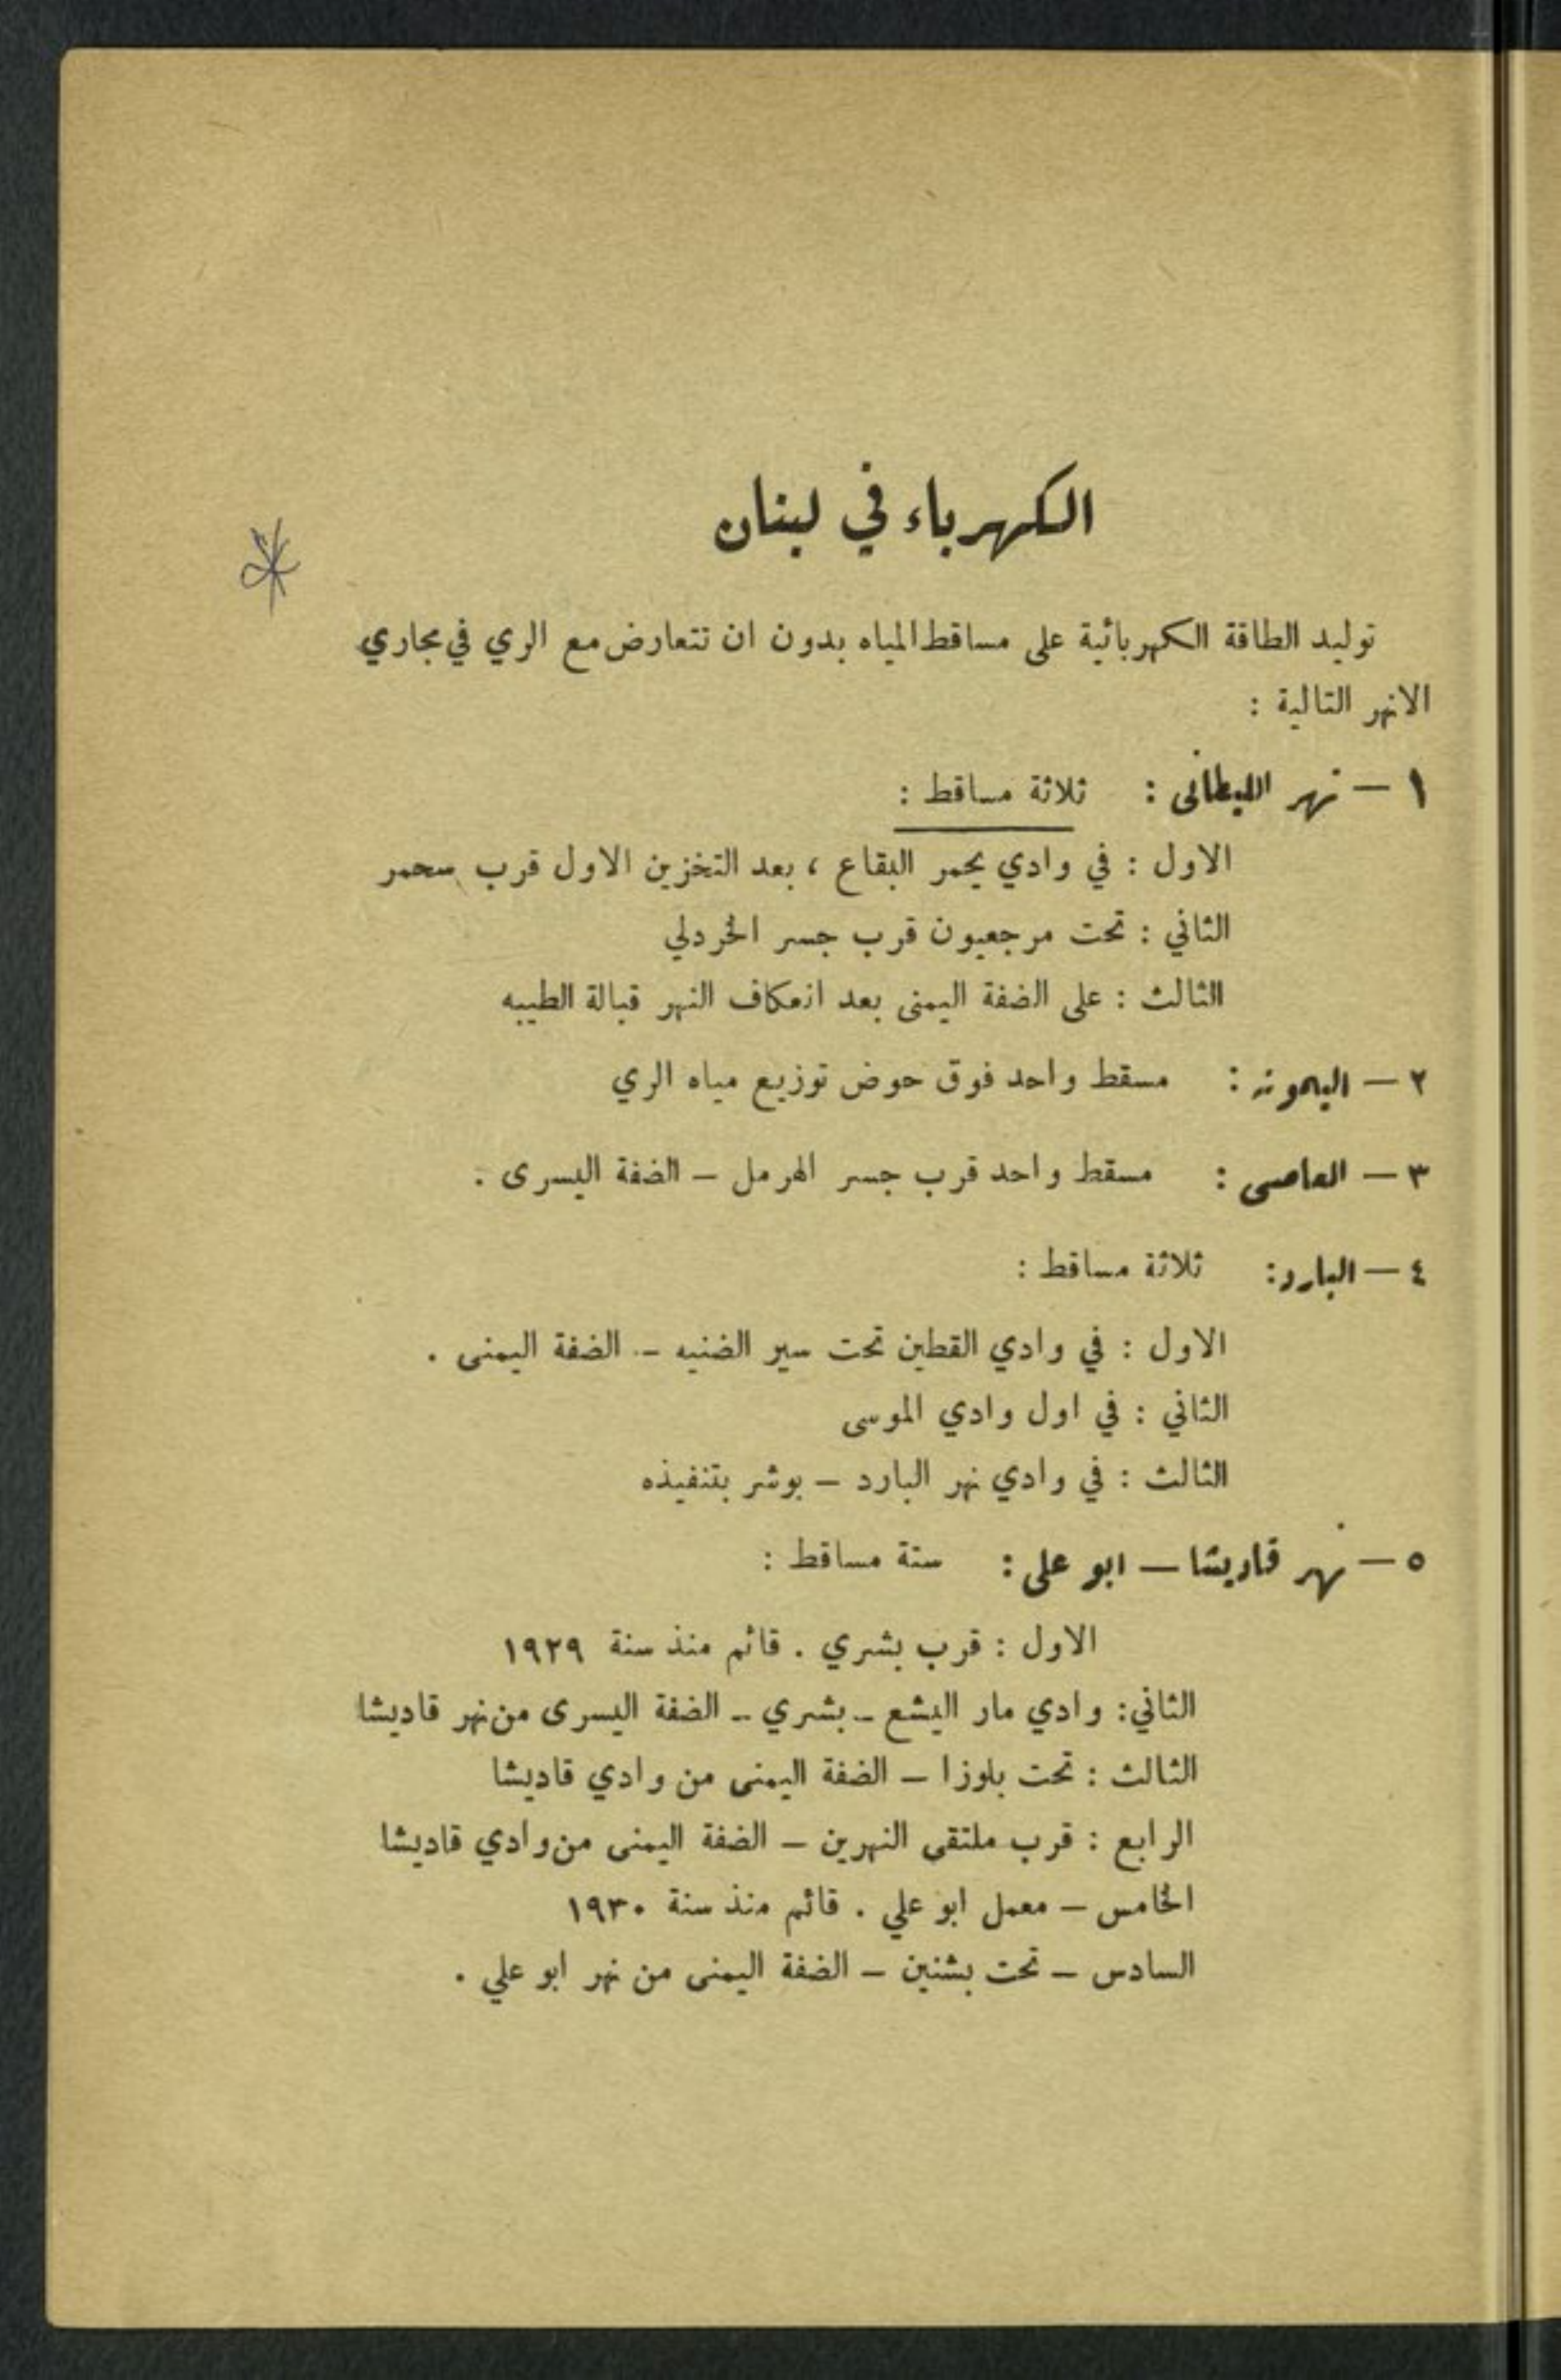 الكهرباء في لبنان
توليد الطاقة الكهربائية على مساقط المياه بدون ان تتعارض مع الري في مجاري
الانهر التالية :
١ – نهر الليطاني : ثلاثة مساقط :
الاول : في وادي يحمر البقاع ، بعد التخزين الاول قرب سحمر
الثاني : تحت مرجعيون قرب جسر الخردلي
الثالث : على الضفة اليمنى بعد انعكاف النهر قبالة الطيبه
٢ – اليمونه : مسقط واحد فوق حوض توزيع مياه الري
٣ – العاصي : مسقط واحد قرب جسر الهرمل – الضفة اليسرى .
٤ – البارد : ثلاثة مساقط :
الاول : في وادي القطين تحت سير الضنيه – الضفة اليمنى .
الثاني : في اول وادي الموسى
الثالث : في وادي نهر البارد – بوشر بتنفيذه
٥ – نهر قاديشا – ابو علي : ستة مساقط :
الاول : قرب بشري . قائم منذ سنة ١٩٢٩
الثاني : وادي مار اليشع – بشري – الضفة اليسرى من نهر قاديشا
الثالث : تحت بلوزا – الضفة اليمنى من وادي قاديشا
الرابع : قرب ملتقى النهرين – الضفة اليمنى من وادي قاديشا
الخامس – معمل ابو علي . قائم منذ سنة ١٩٣٠
السادس – تحت بشنين – الضفة اليمنى من نهر ابو علي .